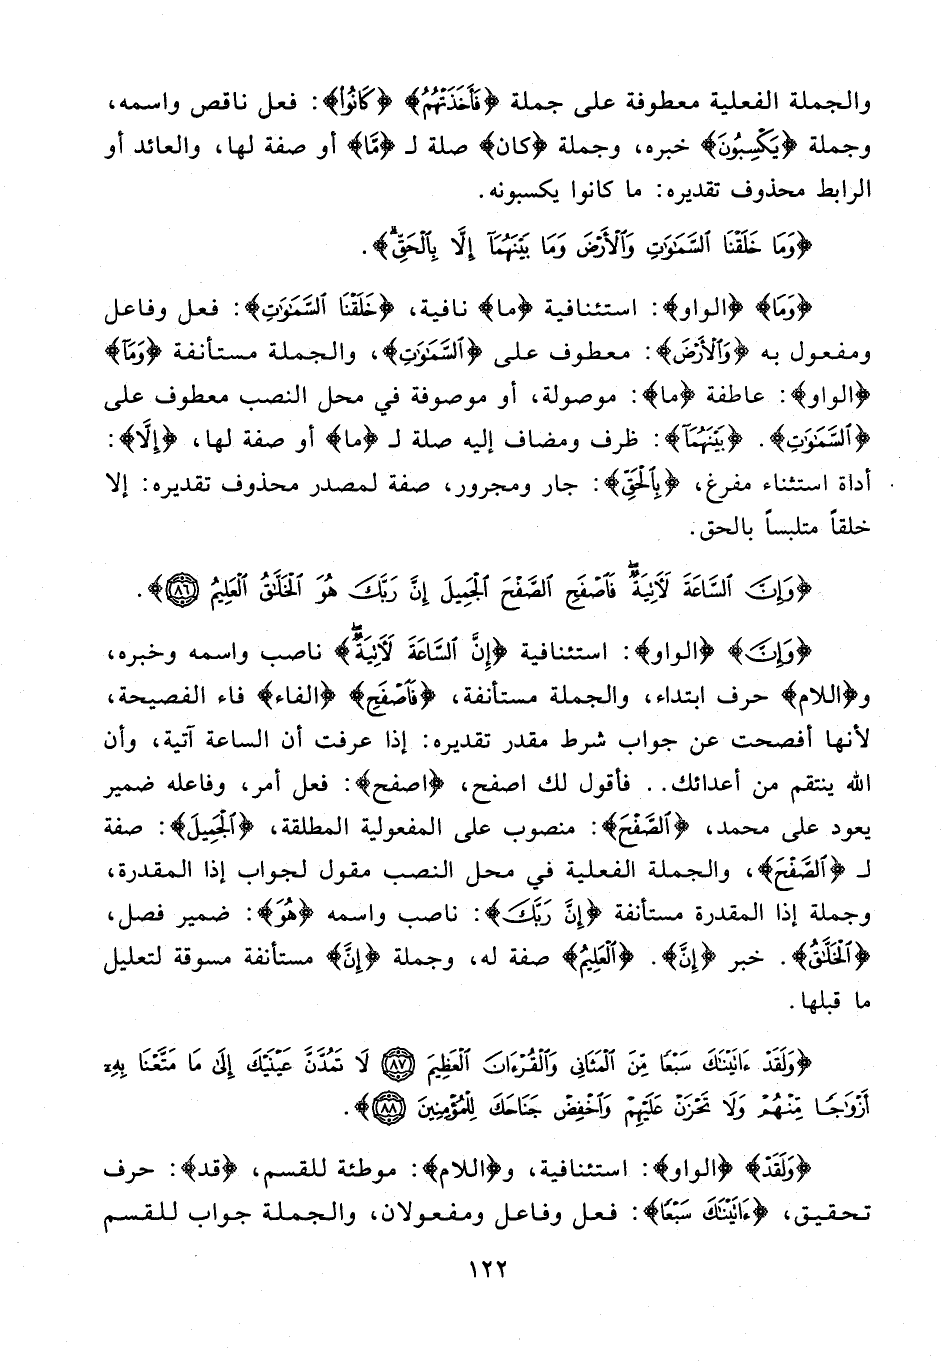 والجملة الفعلية معطوفة على جملة ﴿فَأَخَذَتْهُمُ﴾ ﴿كَانُوا۟﴾: فعل ناقص واسمه،
وجملة ﴿يَكْسِبُونَ﴾ خبره، وجملة ﴿كان﴾ صلة لـ ﴿مَّا﴾ أو صفة لها، والعائد أو
الرابط محذوف تقديره: ما كانوا يكسبونه.
﴿وَمَا خَلَقْنَا ٱلسَّمَٰوَٰتِ وَٱلْأَرْضَ وَمَا بَيْنَهُمَآ إِلَّا بِٱلْحَقِّۗ﴾.
﴿وَمَا﴾ ﴿الواو﴾: استئنافية ﴿ما﴾ نافية، ﴿خَلَقْنَا ٱلسَّمَٰوَٰتِ﴾: فعل وفاعل
ومفعول به ﴿وَٱلْأَرْضَ﴾: معطوف على ﴿ٱلسَّمَٰوَٰتِ﴾، والجملة مستأنفة ﴿وَمَآ﴾
﴿الواو﴾: عاطفة ﴿ما﴾: موصولة، أو موصوفة في محل النصب معطوف على
﴿ٱلسَّمَٰوَٰتِ﴾. ﴿بَيْنَهُمَآ﴾: ظرف ومضاف إليه صلة لـ ﴿ما﴾ أو صفة لها، ﴿إِلَّا﴾:
أداة استثناء مفرغ، ﴿بِٱلْحَقِّ﴾: جار ومجرور، صفة لمصدر محذوف تقديره: إلا
خلقاً متلبساً بالحق.
﴿وَإِنَّ ٱلسَّاعَةَ لَءَاتِيَةٌۖ فَٱصْفَحِ ٱلصَّفْحَ ٱلْجَمِيلَ إِنَّ رَبَّكَ هُوَ ٱلْخَلَّٰقُ ٱلْعَلِيمُ ٨٦﴾.
﴿وَإِنَّ﴾ ﴿الواو﴾: استئنافية ﴿إِنَّ ٱلسَّاعَةَ لَءَاتِيَةٌۖ﴾ ناصب واسمه وخبره،
و﴿اللام﴾ حرف ابتداء، والجملة مستأنفة، ﴿فَٱصْفَحِ﴾ ﴿الفاء﴾ فاء الفصيحة،
لأنها أفصحت عن جواب شرط مقدر تقديره: إذا عرفت أن الساعة آتية، وأن
الله ينتقم من أعدائك.. فأقول لك اصفح، ﴿اصفح﴾: فعل أمر، وفاعله ضمير
يعود على محمد، ﴿ٱلصَّفْحَ﴾: منصوب على المفعولية المطلقة، ﴿ٱلْجَمِيلَ﴾: صفة
لـ ﴿ٱلصَّفْحَ﴾، والجملة الفعلية في محل النصب مقول لجواب إذا المقدرة،
وجملة إذا المقدرة مستأنفة ﴿إِنَّ رَبَّكَ﴾: ناصب واسمه ﴿هُوَ﴾: ضمير فصل،
﴿ٱلْخَلَّٰقُ﴾. خبر ﴿إِنَّ﴾. ﴿ٱلْعَلِيمُ﴾ صفة له، وجملة ﴿إِنَّ﴾ مستأنفة مسوقة لتعليل
ما قبلها.
﴿وَلَقَدْ ءَاتَيْنَٰكَ سَبْعًا مِّنَ ٱلْمَثَانِى وَٱلْقُرْءَانَ ٱلْعَظِيمَ ٨٧ لَا تَمُدَّنَّ عَيْنَيْكَ إِلَىٰ مَا مَتَّعْنَا بِهِۦٓ
أَزْوَٰجًا مِّنْهُمْ وَلَا تَحْزَنْ عَلَيْهِمْ وَٱخْفِضْ جَنَاحَكَ لِلْمُؤْمِنِينَ ٨٨﴾.
﴿وَلَقَدْ﴾ ﴿الواو﴾: استئنافية، و﴿اللام﴾: موطئة للقسم، ﴿قد﴾: حرف
تحقيق، ﴿ءَاتَيْنَٰكَ سَبْعًا﴾: فعل وفاعل ومفعولان، والجملة جواب للقسم
١٢٢